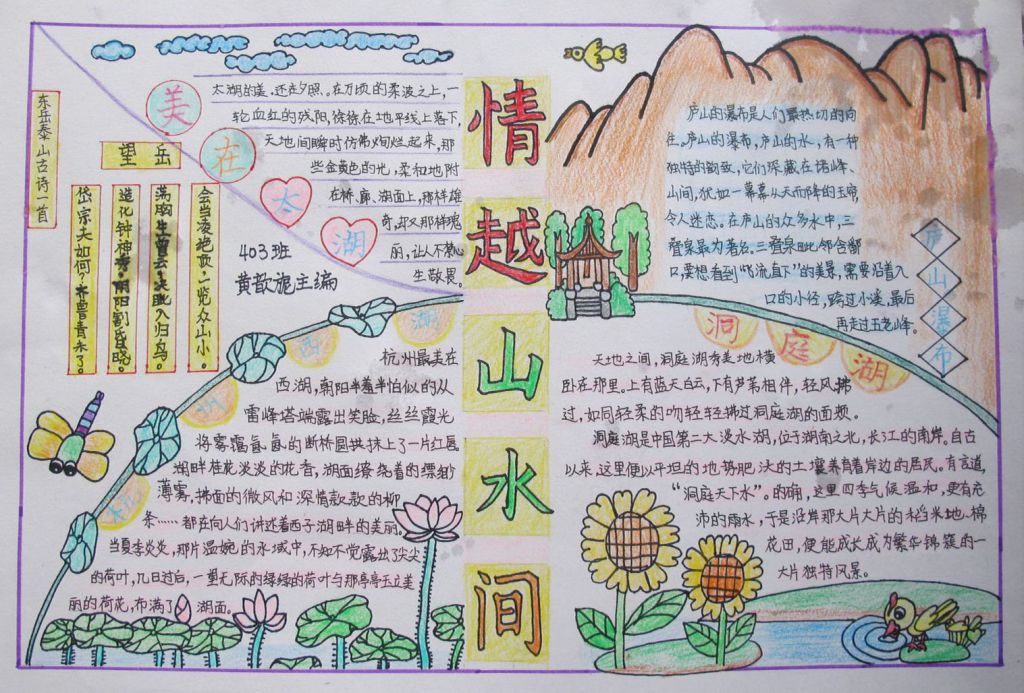 情越山水间
东岳泰山古诗一首
望岳
岱宗夫如何,齐鲁青未了。
造化钟神秀,阴阳割昏晓。
荡胸生曾云,决眦入归鸟。
会当凌绝顶,一览众山小。
美在太湖
太湖的美,还在夕照。在万顷的柔波之上,一
轮血红的残阳,徐徐在地平线上落下,
天地间瞬时仿佛绚烂起来,那
些金黄色的光,柔和地附
在桥、廊、湖面上,那样雄
奇,却又那样瑰
丽,让人不禁心
生敬畏。
403班
黄歆旎主编
杭州西湖
杭州最美在
西湖,朝阳半羞半怕似的从
雷峰塔端露出笑脸,丝丝霞光
将雾霭氤氲的断桥圆拱抹上了一片红晕
湖畔桂花淡淡的花香,湖面缭绕着的缥缈
薄雾,拂面的微风和深情款款的柳
条……都在向人们讲述着西子湖畔的美丽。
当夏季炎炎,那片温婉的水域中,不知不觉露出了尖尖
的荷叶,几日过后,一望无际的绿绿的荷叶与那亭亭玉立美
丽的荷花,布满了湖面。
庐山瀑布
庐山的瀑布是人们最热切的向
往。庐山的瀑布,庐山的水,有一种
独特的韵致,它们深藏在诸峰、
山间,犹如一幕幕从天而降的玉帘,
令人迷恋。在庐山的众多水中,三
叠泉最为著名。三叠泉毗邻含鄱
口,要想看到“飞流直下”的美景,需要沿着入
口的小径,跨过小溪,最后
再走过五老峰。
洞庭湖
天地之间,洞庭湖秀美地横
卧在那里。上有蓝天白云,下有芦苇相伴,轻风拂
过,如同轻柔的吻轻轻拂过洞庭湖的面颊。
洞庭湖是中国第二大淡水湖,位于湖南之北,长江的南岸。自古
以来,这里便以平坦的地势肥沃的土壤养育着岸边的居民。有言道,
“洞庭天下水”。的确,这里四季气候温和,更有充
沛的雨水,于是沿岸那大片大片的稻米地、棉
花田,便能成长成为繁华锦簇的一
大片独特风景。